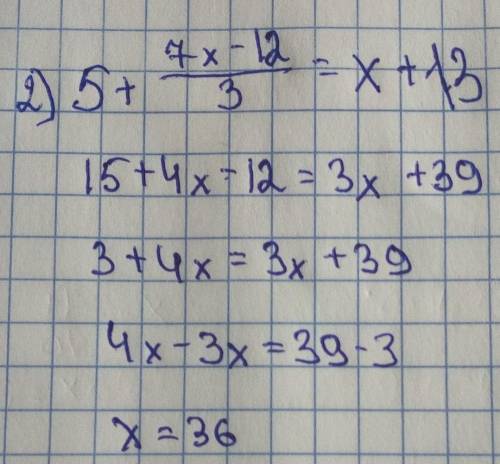 2) 5 + (7x - 12)/3 = x + 13
15 + 4x - 12 = 3x + 39
3 + 4x = 3x + 39
4x - 3x = 39 - 3
x = 36